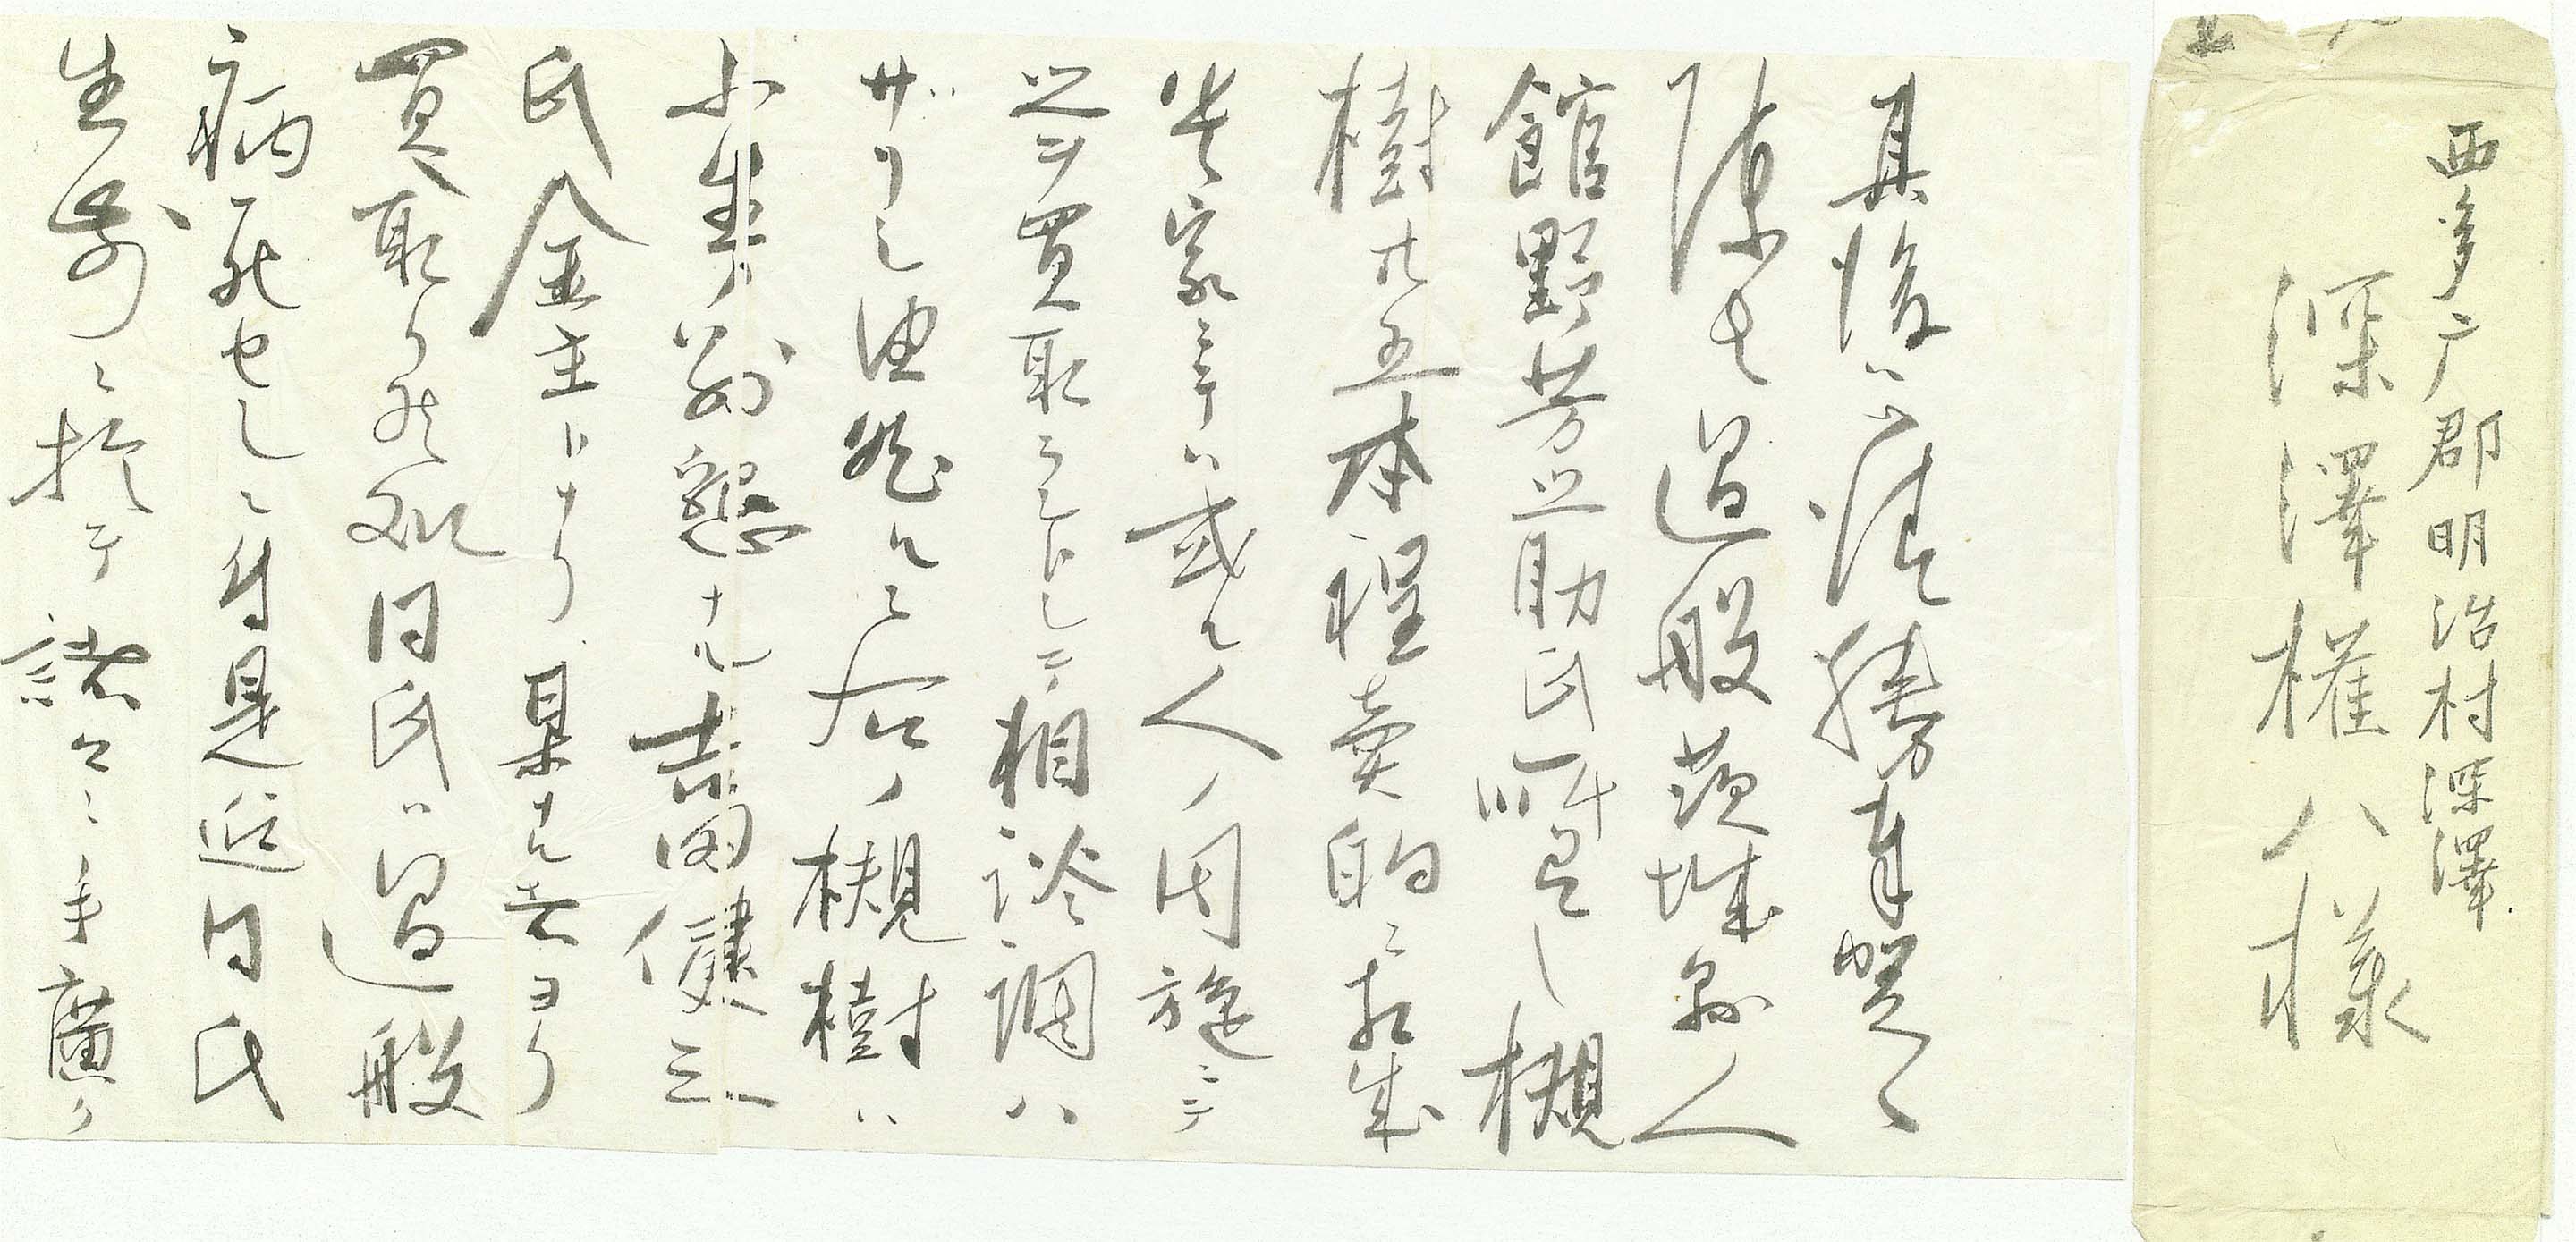 西多广郡明治村深澤
深澤權八様
其後ハ御清勝奉賀候
陳者過般茨城縣人
館野芳之助氏所有ノ槻
樹廿五本程賣的ニ相成
貴家ニテハ或ル人ノ周旋ニテ
之ヲ買取ラントシテ相談調ハ
ザリシ由然ルニ右ノ槻樹ハ
小生別懇ナル吉田健三
氏金主トナリ某ナル者ヨリ
買取リ候処同氏ハ過般
病死セシニ付是迄同氏
生前ニ於テ諸々ニ手廣ク